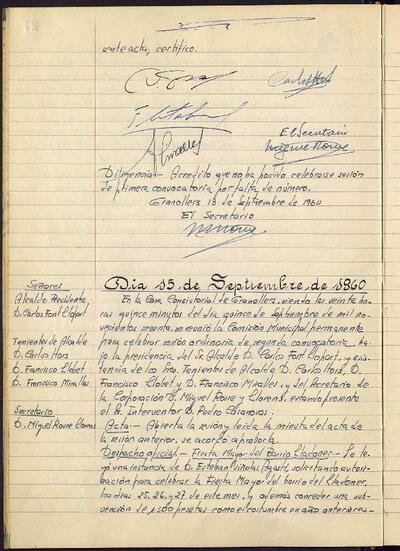 ente acta, certifico.
Carlos Hors
El Secretario
Diligencia - Acredito que no ha podido celebrarse sesión
de primera convocatoria por falta de número.
Granollers 13 de Septiembre de 1960
El Secretario
Señores
Alcalde Presidente
D. Carlos Font Llopart
Tenientes de Alcalde
D. Carlos Hors
D. Francisco Llobet
D. Francisco Miralles
Secretario
D. Miguel Roure Llorens
Dia 15 de Septiembre de 1960
En la Casa Consistorial de Granollers, siendo las veinte ho
ras quince minutos del dia quince de Septiembre de mil no-
vecientos sesenta, se reunió la Comisión Municipal permanente
para celebrar sesión ordinaria de segunda convocatoria, ba
jo la presidencia del Sr. Alcalde D. Carlos Font Llopart, y asis-
tencia de los Sres. Tenientes de Alcalde D. Carlos Hors, D.
Francisco Llobet y D. Francisco Miralles, y del Secretario de
la Corporación D. Miguel Roure y Llorens, estando presente
el Sr. Interventor D. Pedro Casanovas.
Acta - Abierta la sesión y leida la minuta del acta de
la sesión anterior, se acordo aprobarla.
Despacho oficial - Fiesta Mayor del Barrio Lladoner.- Se le-
yó una instancia de D. Esteban Viñolas Agustí, solicitando autori-
zación para celebrar la Fiesta Mayor del barrio del Lladoner,
los dias 25, 26, y 27 de este mes, y además conceder una sub-
vención de 1,500 pesetas como el costumbre en años anteriores.-